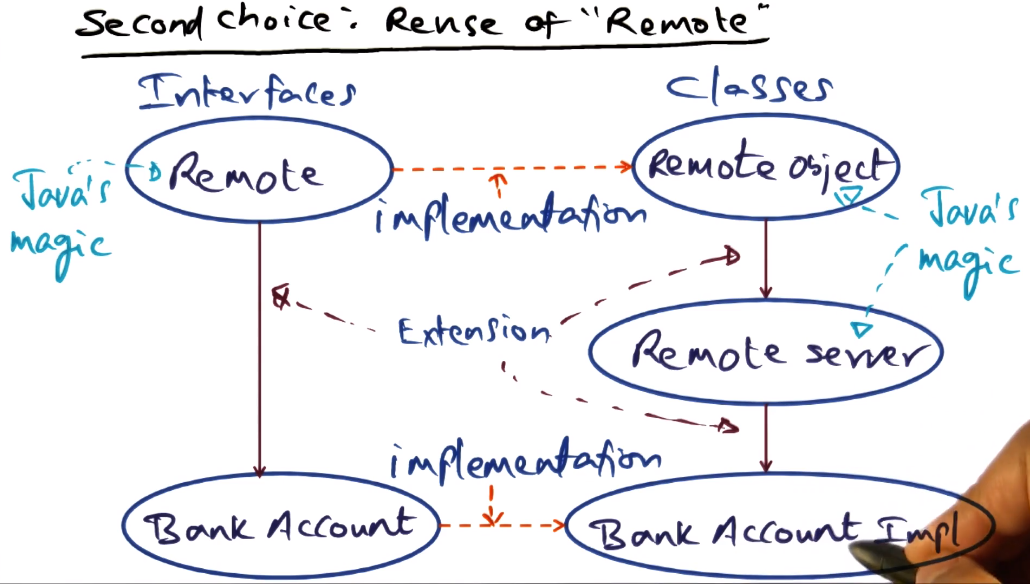 Second choice: Reuse of "Remote"
Interfaces
Classes
Java's
magic
Remote
implementation
Remote object
Java's
magic
Extension
Remote server
implementation
Bank Account
Bank Account Impl